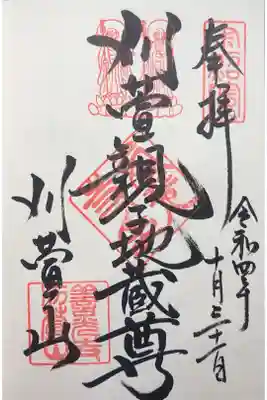 奉拝
令和四年
十月三十一日
刈萱親子地蔵尊
刈萱山